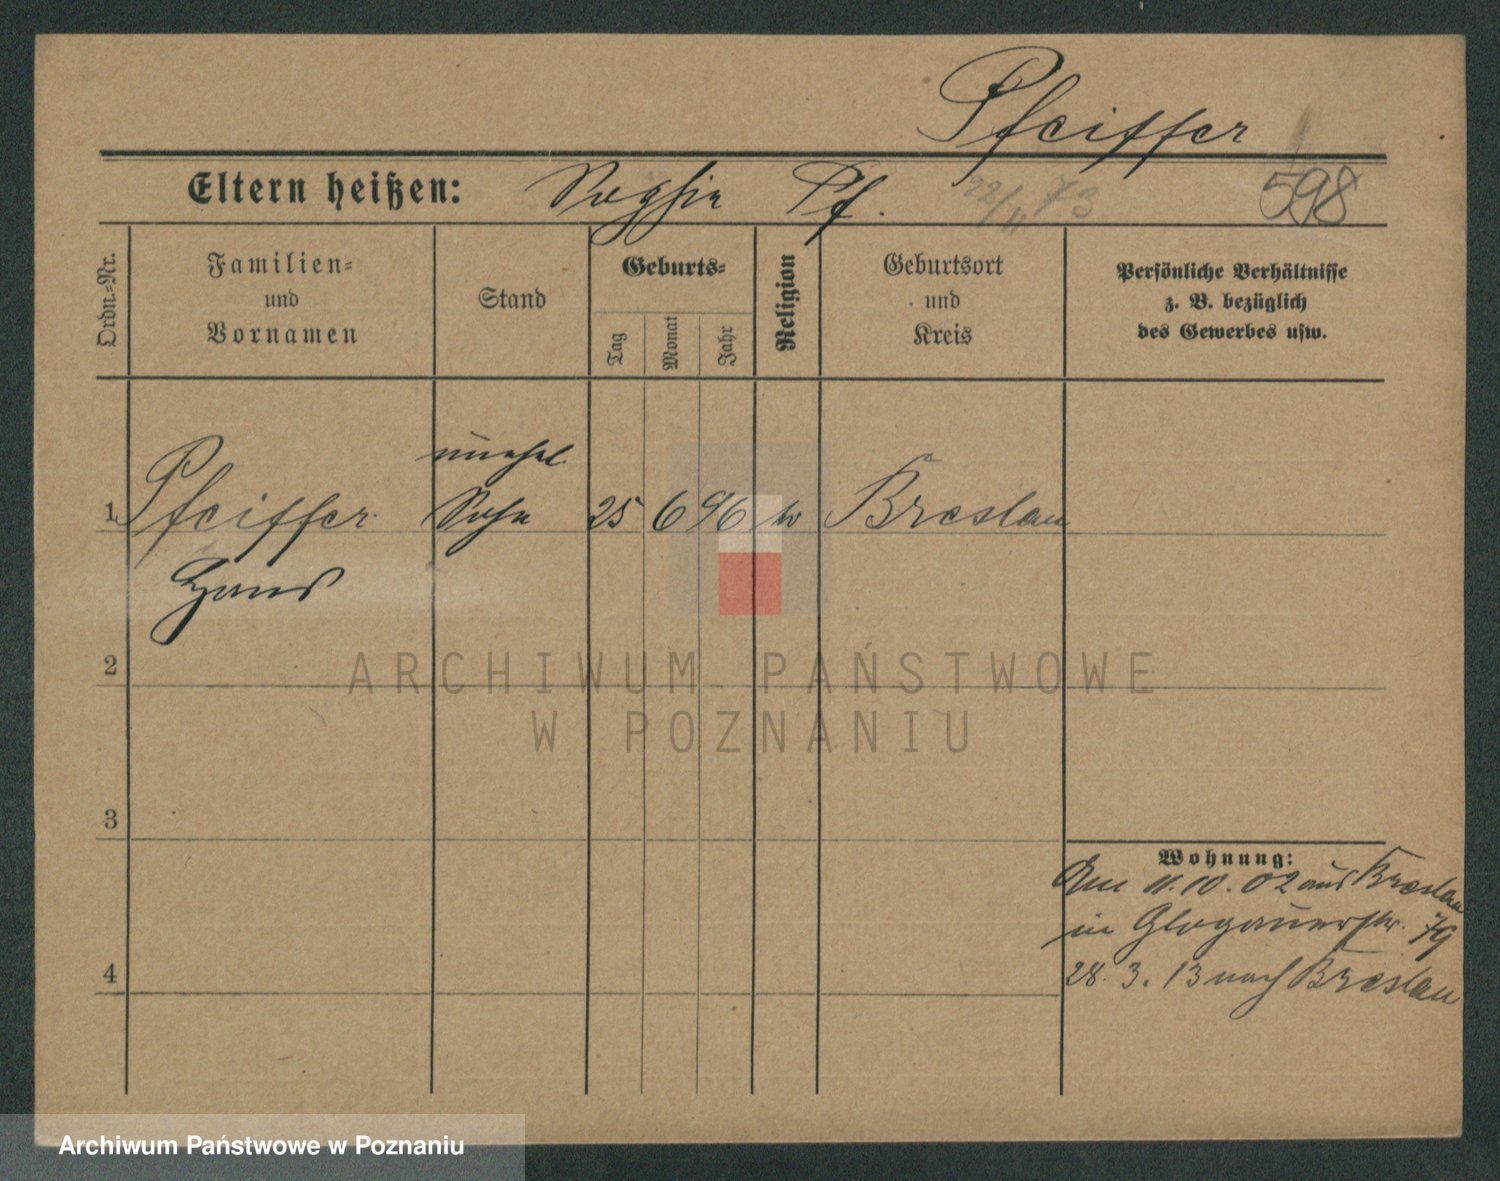 Pfeiffer
Eltern heißen: Sophie Pf. 22/11 73 598
Ordn.-Nr.
Familien-
und
Vornamen
Stand
Geburts-
Tag
Monat
Jahr
Religion
Geburtsort
und
Kreis
Persönliche Verhältnisse
z. B. bezüglich
des Gewerbes usw.
unehel.
1 Pfeiffer Sohn 25 6 96 Breslau
Hans
2
3
4
Wohnung:
Am 11.10.02 aus Breslau
in Glogauerstr. 79
28.3.13 nach Breslau
ARCHIWUM PAŃSTWOWE
W POZNANIU
Archiwum Państwowe w Poznaniu